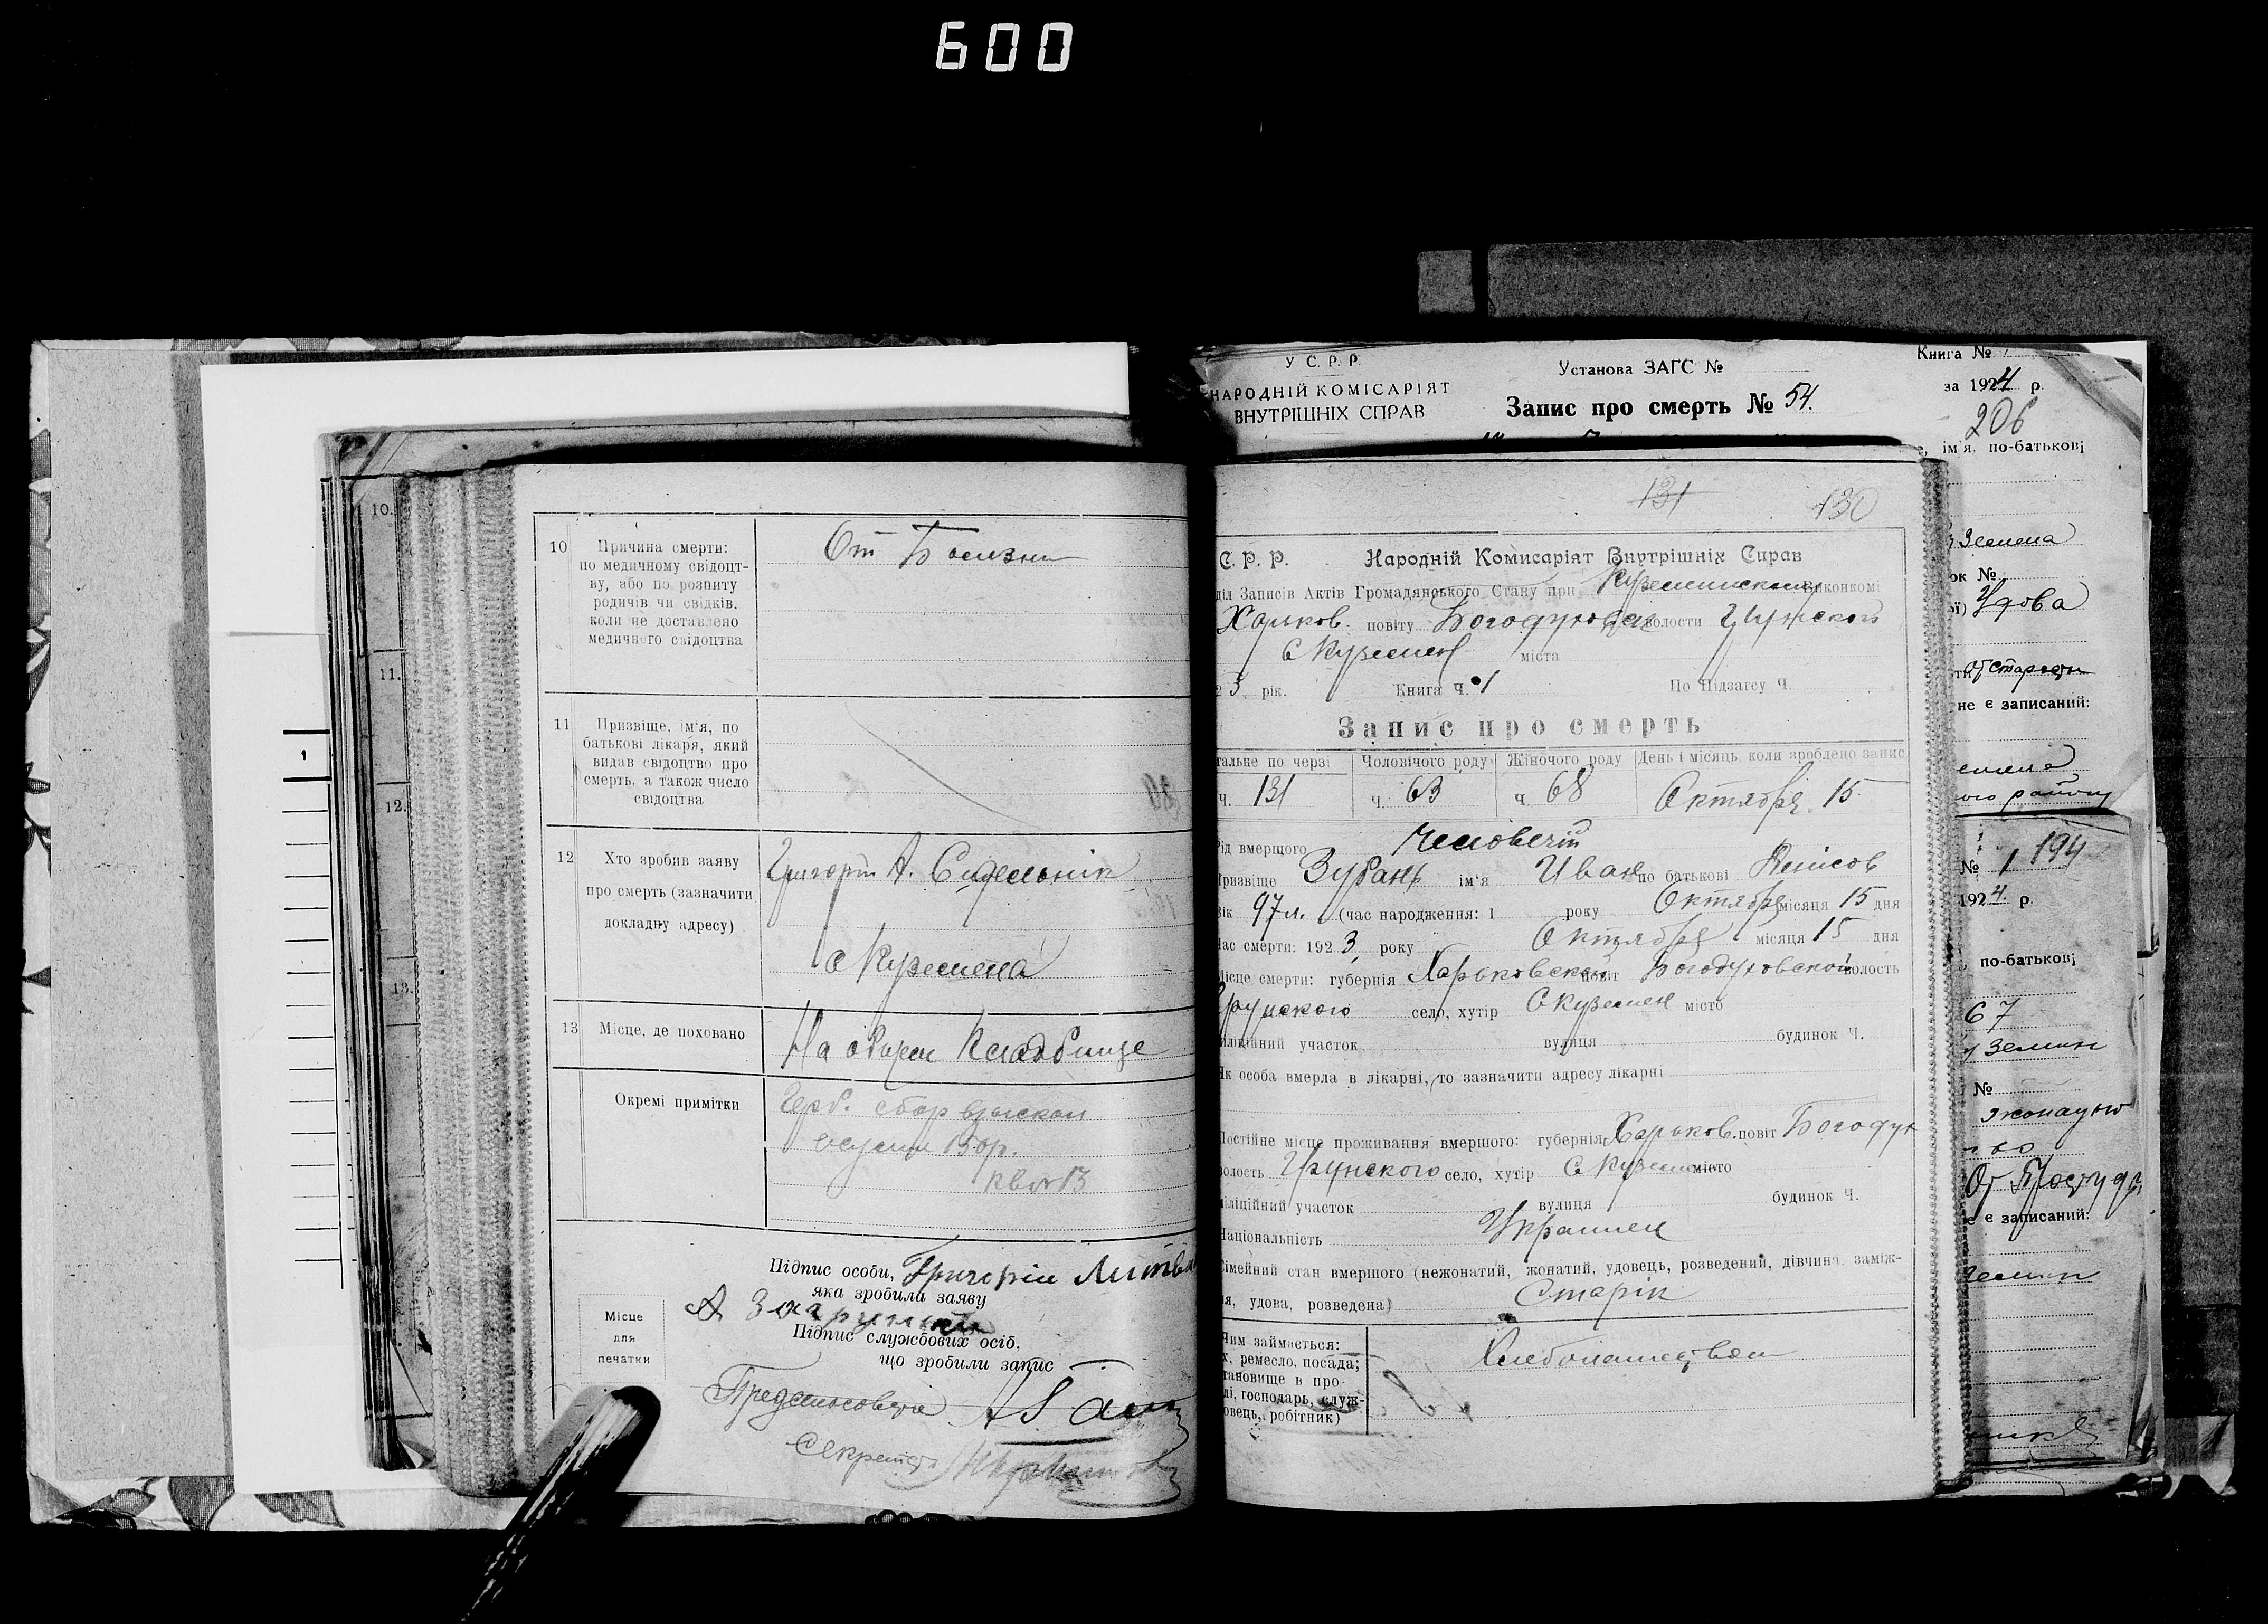 600
10.
11.
12.
13.
1
10 Причина смерти:
по медичному свідоцт-
ву, або по розпиту
родичів чи свідків,
коли не доставлено
медичного свідоцтва
От Болизни
11 Призвіще, ім'я, по
батькові лікаря, який
видав свідоцтво про
смерть, а також число
свідоцтва
12 Хто зробив заяву
про смерть (зазначити
докладну адресу)
Григорій А. Сидельнік
с Куземена
13 Місце, де поховано
На обчрем Кладбище
Окремі примітки
Герб. сбор взыскан
150р.
квит 13
Підпис особи, Григорій
яка зробила заяву
Підпис службових осіб,
що зробили запис
Місце
для
печатки
Секрет.
У С. Р. Р.
НАРОДНІЙ КОМІСАРІЯТ
ВНУТРІШНІХ СПРАВ
Установа ЗАГС №
Запис про смерть № 54.
Книга №
за 1924 р.
206
ім'я, по-батькові
131 130
С. Р. Р. Народній Комисаріят Внутрішніх Справ
діл Записів Актів Громадянського Стану при Куземинском виконкомі
Харьков. повіту Богодухов волости Грунской
С Куземен міста
2 3 рік. Книга Ч. 1 По Підзагсу Ч.
Запис про смерть
гальне по черзі Чоловічого роду Жіночого роду День і місяць, коли зроблено запис
ч. 131 ч. 63 ч. 68 Октября 15
Рід вмершого Человечій
Призвіще Зубань ім'я Иван по батькові Денисов
Вік 97 л. (час народження: 1 року Октября місяця 15 дня
Час смерти: 1923, року Октября місяця 15 дня
Місце смерти: губернія Харьковской повіт Богодуховской волость
Грунского село, хутір С Куземен місто
міліційний участок вулиця будинок Ч.
Як особа вмерла в лікарні, то зазначити адресу лікарні
Постійне місце проживання вмершого: губернія Харьков. повіт Богодух
волость Грунского село, хутір С Куземен місто
міліційний участок вулиця будинок Ч.
Національність Украинец
Сімейний стан вмершого (нежонатий, жонатий, удовець, розведений, дівчина, заміж-
ня, удова, розведена) Старік
Чим займається:
х, ремесло, посада;
тановище в про-
лі, господарь, служ-
овець, робітник)
Хлебопашеством
Земена
ок №
Удова
От Старости
не є записаний:
ого району
№ 1 194
1924 р.
по-батькові
67
№
От Простуды
е є записаний: